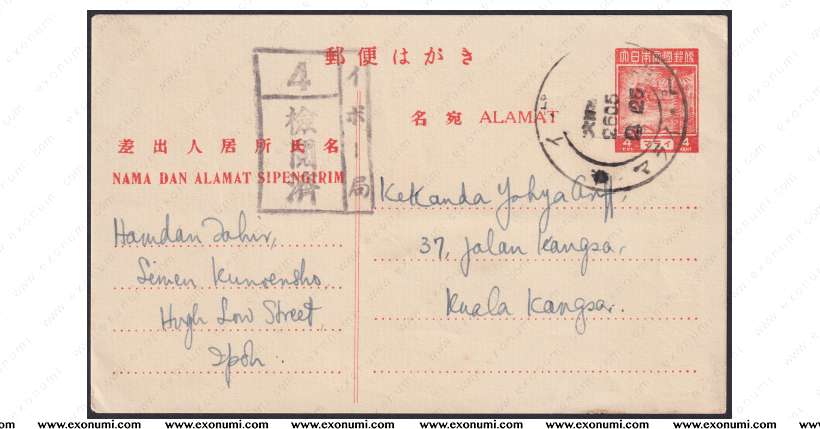 郵便はがき
大日本帝國郵便
4 マライ 4
イポー局
4
検閲済
名宛 ALAMAT
差出人居所氏名
NAMA DAN ALAMAT SIPENGIRIM
2605
Kekanda Yahya Ariff,
37, Jalan Kangsar
Kuala Kangsar.
Hamdan Tahir,
Seinen Kunrensho,
Hugh Low Street,
Ipoh.
www.exonumi.com www.exonumi.com www.exonumi.com www.exonumi.com www.exonumi.com